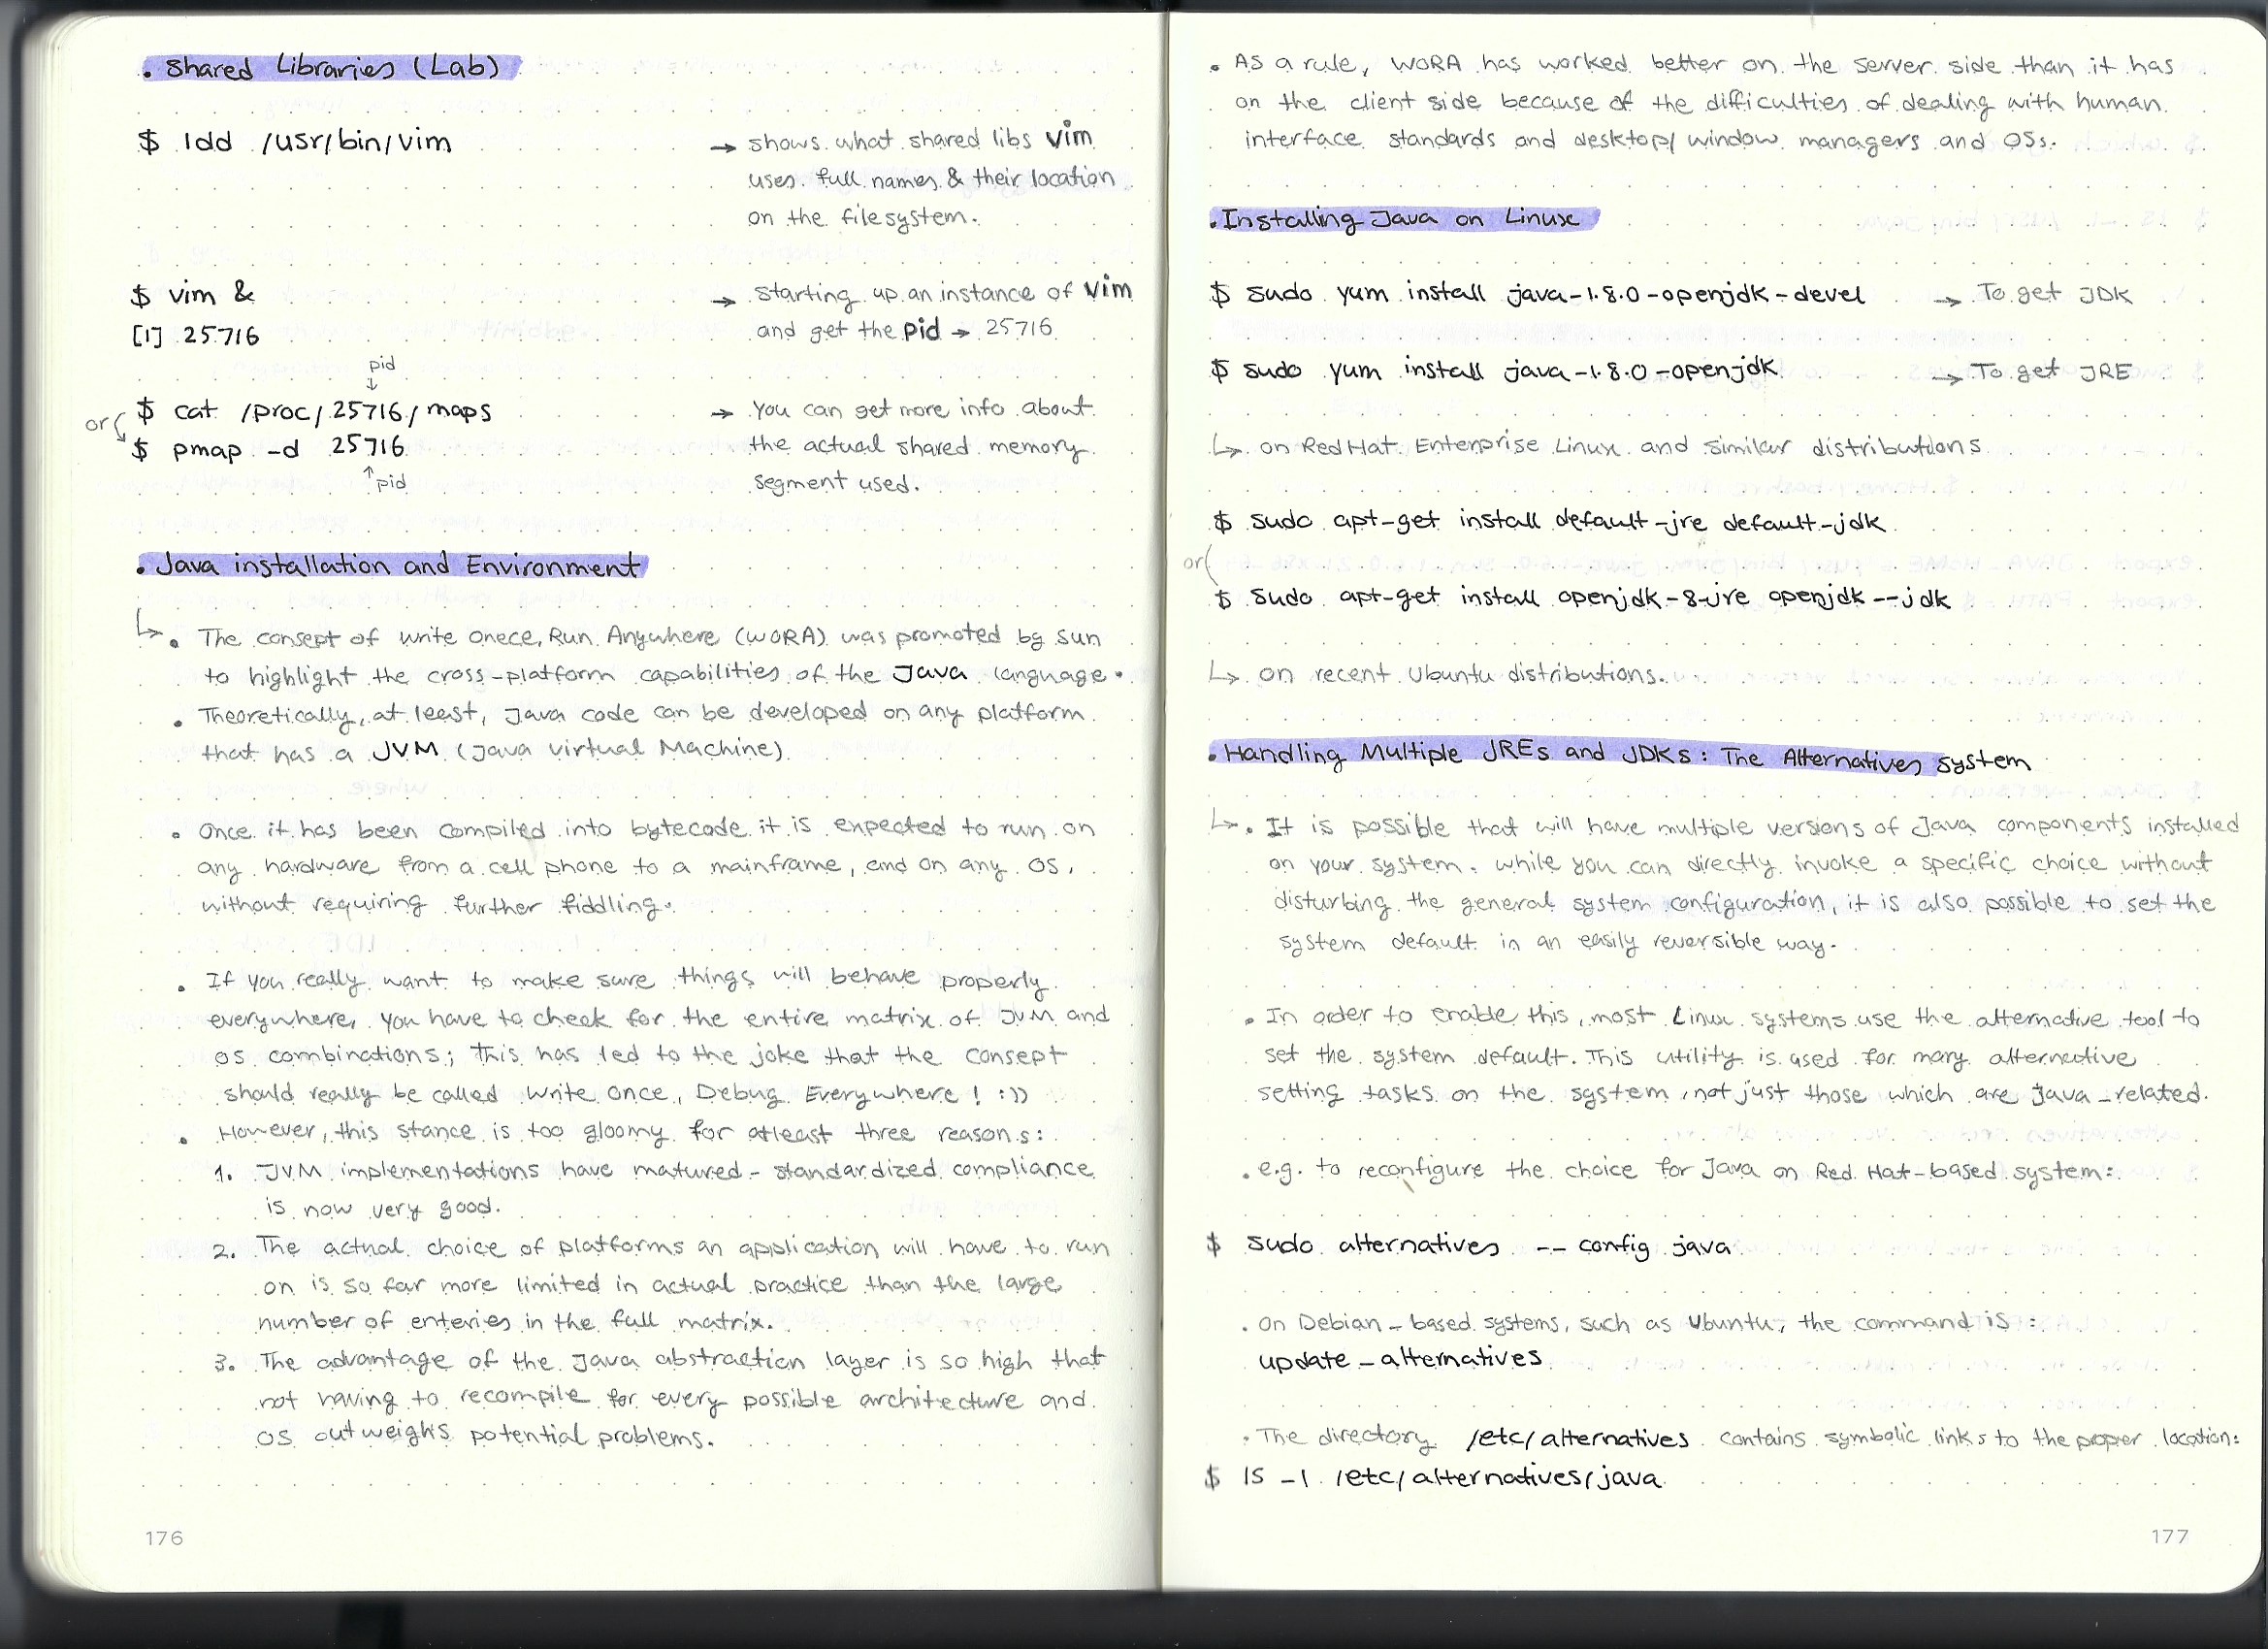 . Shared Libraries (Lab)
$ ldd /usr/bin/vim → shows what shared libs vim
uses. full names & their location
on the filesystem.
$ vim & → starting up an instance of vim
[1] 25716 and get the pid → 25716
pid
↓
$ cat /proc/25716/maps → You can get more info about
or
$ pmap -d 25716 the actual shared memory
↑ pid segment used.
. Java installation and Environment
↳ . The consept of write Onece, Run Anywhere (WORA) was promoted by Sun
to highlight the cross-platform capabilities of the Java language.
. Theoretically, at least, Java code can be developed on any platform
that has a JVM (Java Virtual Machine)
. Once it has been compiled into bytecode it is expected to run on
any hardware from a cell phone to a mainframe, and on any OS,
without requiring further fiddling.
. If you really want to make sure things will behave properly
everywhere, you have to check for the entire matrix of JVM and
OS combinations; This has led to the joke that the consept
should really be called Write Once, Debug Everywhere! :))
. However, this stance is too gloomy for atleast three reasons:
1. JVM implementations have matured - standardized compliance
is now very good.
2. The actual choice of platforms an application will have to run
on is so far more limited in actual practice than the large
number of enteries in the full matrix.
3. The advantage of the Java abstraction layer is so high that
not having to recompile for every possible architecture and
OS outweighs potential problems.
176
. As a rule, WORA has worked better on the server side than it has
on the client side because of the difficulties of dealing with human
interface standards and desktop/window managers and OSs.
. Installing Java on Linux
$ sudo yum install java-1.8.0-openjdk-devel → To get JDK
$ sudo yum install java-1.8.0-openjdk → To get JRE
↳ on RedHat Enterprise Linux and similar distributions
$ sudo apt-get install default-jre default-jdk
or
$ sudo apt-get install openjdk-8-jre openjdk--jdk
↳ on recent Ubuntu distributions.
. Handling Multiple JREs and JDKs: The Alternatives System
↳ . It is possible that will have multiple versions of Java components installed
on your system. while you can directly invoke a specific choice without
disturbing the general system configuration, it is also possible to set the
system default in an easily reversible way.
. In order to enable this, most Linux systems use the alternative tool to
set the system default. This utility is used for many alternative
setting tasks on the system, not just those which are Java-related.
. e.g. to reconfigure the choice for Java on Red Hat-based system:
$ sudo alternatives --config java
. on Debian-based systems, such as Ubuntu, the command is:
update-alternatives
. The directory /etc/alternatives contains symbolic links to the proper location:
$ ls -l /etc/alternatives/java
177